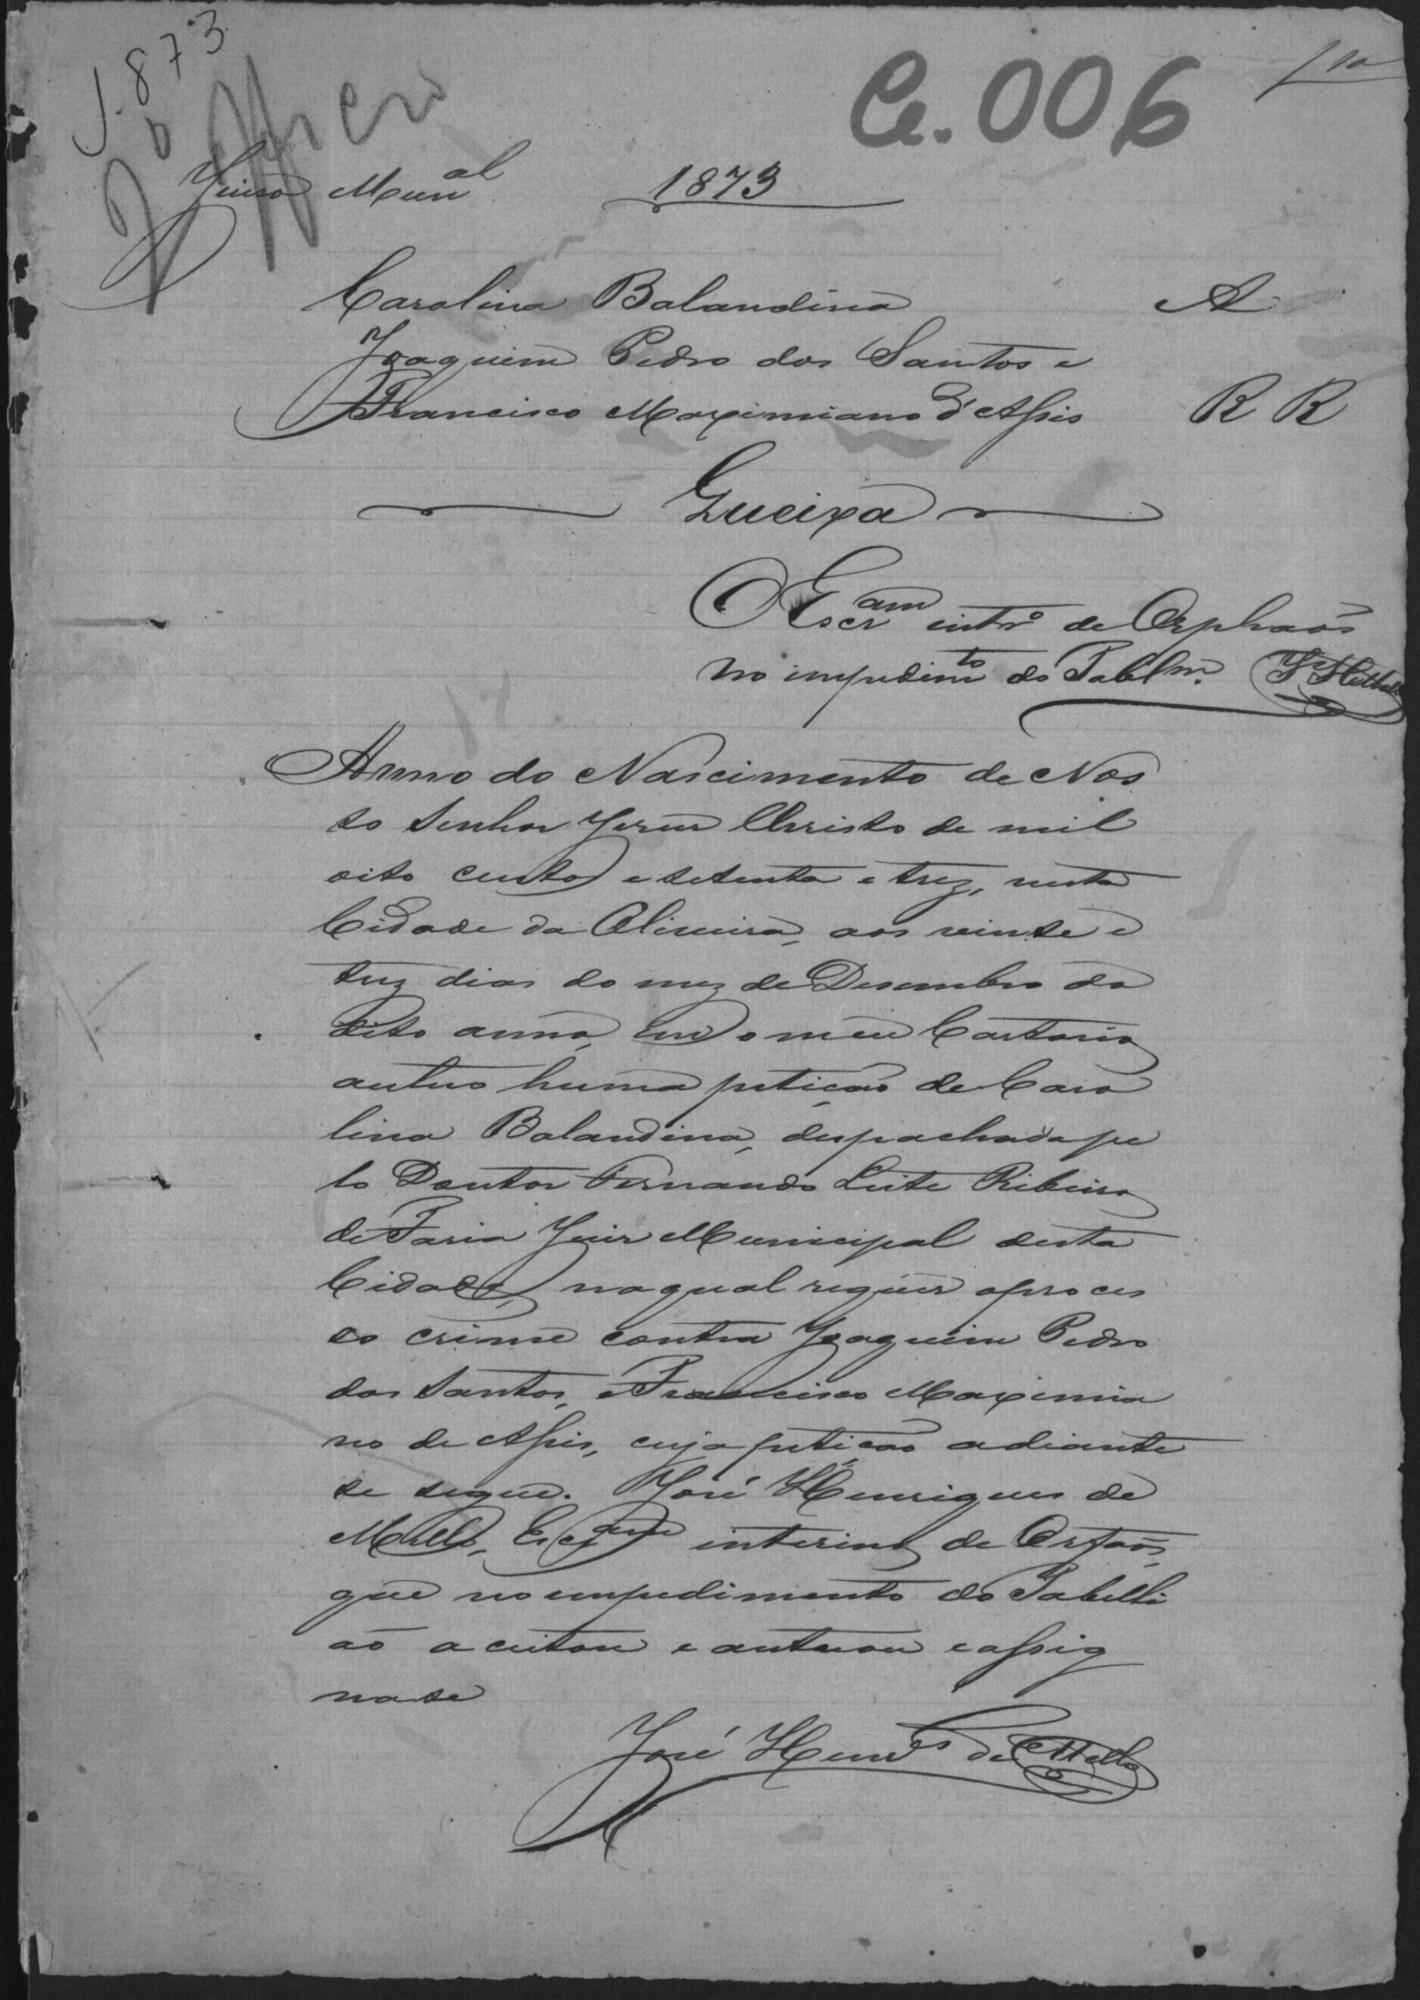 1.873
Ce. 006
2º Officio
Juizo Mun.al 1873
Carolina Balandina A
Joaquim Pedro dos Santos e
Francisco Maximiano d'Assis R R
Queixa
O Escr.am intrº de Orphaõs
no impedim.to do Tabel.m H. Mello
Anno do Nascimento de Nos
so Senhor Jesus Christo de mil
oito centos e setenta e trez, nesta
Cidade da Oliveira, aos vinte e
trez dias do mez de Desembro do
dito anno, em o meu Cartorio
autuo huma petição de Caro
lina Balandina, despachada pe
lo Doutor Fernando Leite Ribeiro
de Faria Juiz Municipal desta
Cidade, na qual requer o proces
so crime contra Joaquim Pedro
dos Santos, e Francisco Maximia
no de Assis, cuja petição adiante
se segue. José Henriques de
Mello, Escr.am interino de Orfaõs,
que no impedimento do Tabelli
aõ aceitou e autuou e assig
na-se
José Henr.es de Mello